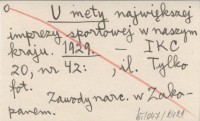 U mety największej
imprezy sportowej w naszym
kraju. 1929. – IKC
20, nr 42: , il. Tylko
fot.
Zawody narc. w Zako-
panem.